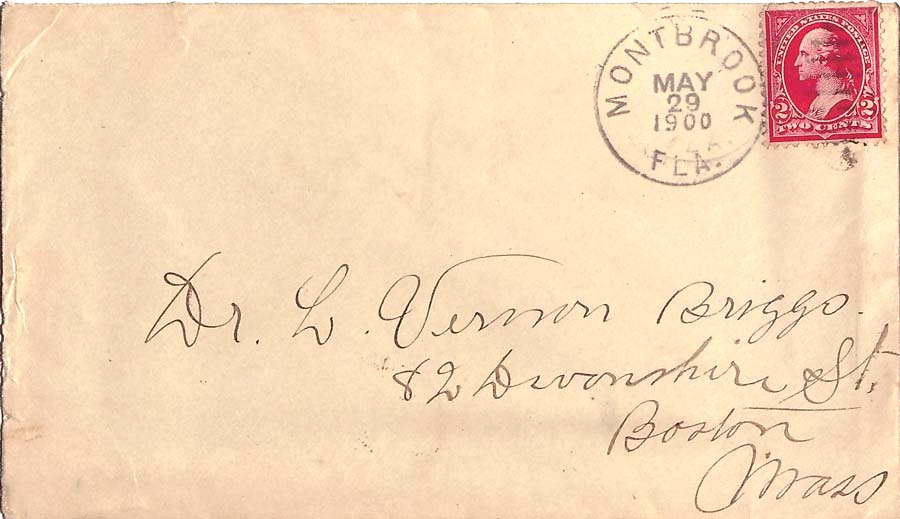 MONTBROOK
MAY
29
1900
FLA.
UNITED STATES POSTAGE
2 2
TWO CENTS
Dr. L. Vernon Briggs.
82 Devonshire St.
Boston
Mass